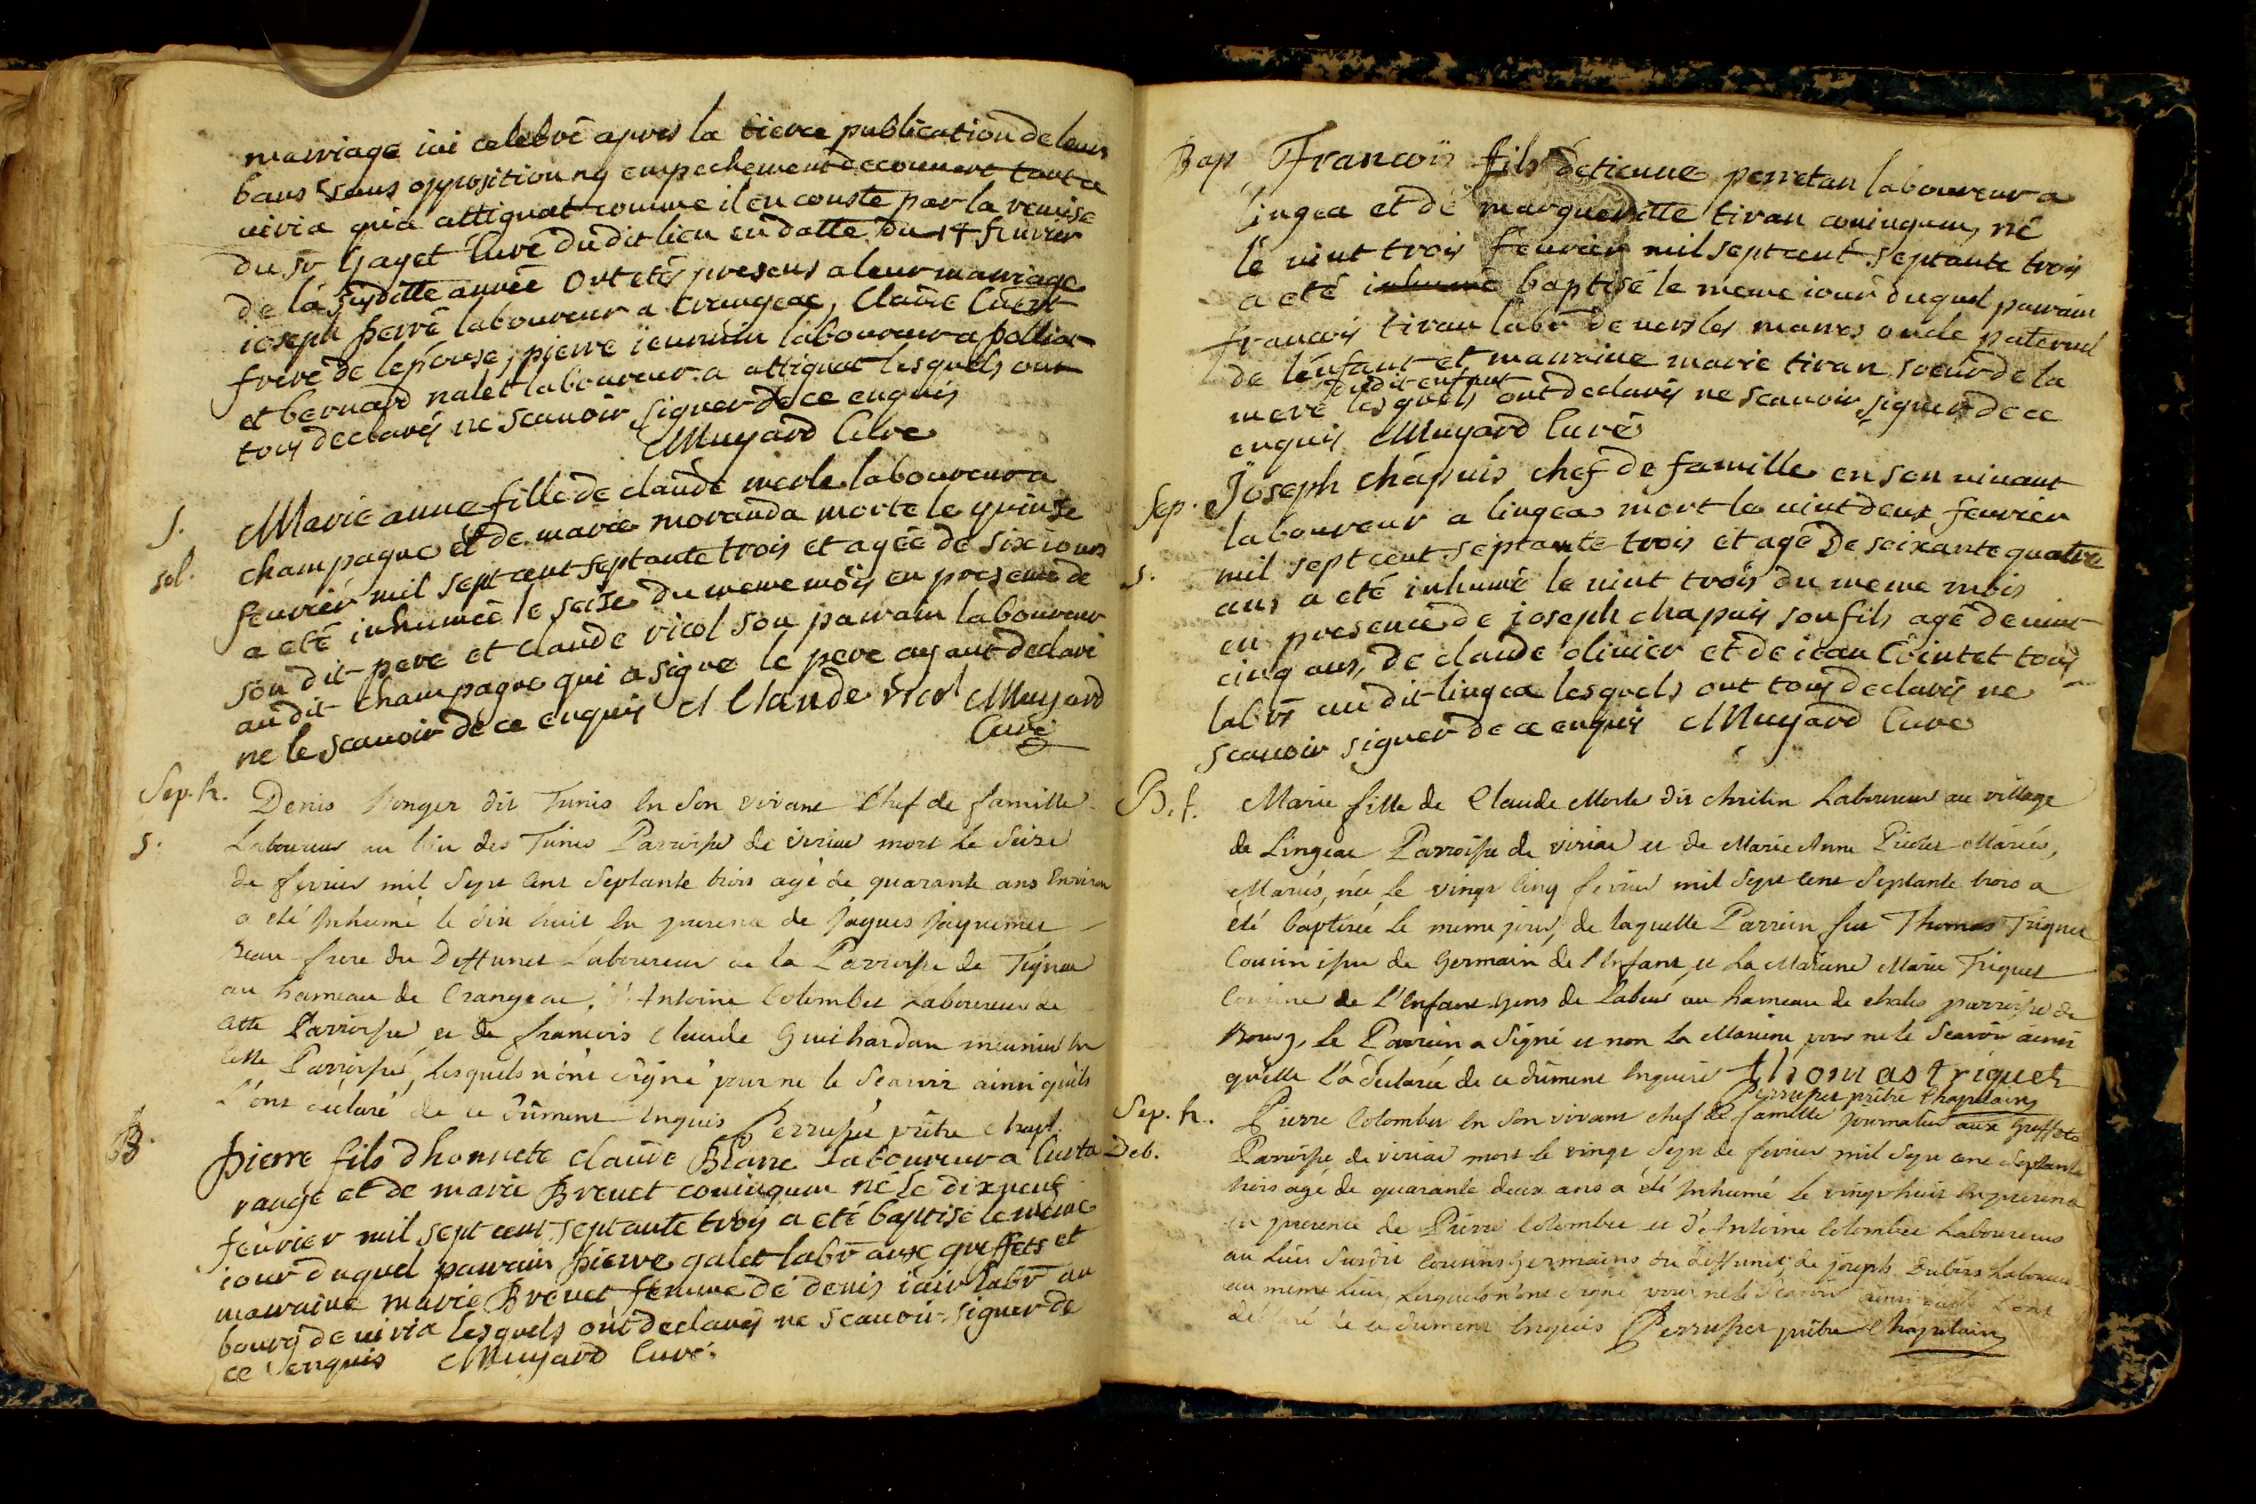 marriage ici celebré apres la tierce publication de leurs
bans sans opposition ny empechement decouvert tant a
viria qu'a attignat comme il en conste par la remise
du sr Gayet Curé dudit lieu en datte du 14 fevrier
de la susditte année Ont etés presens a leur marriage
ioseph perré laboureur a Crangeac, Claude
frere de lepouse, pierre laboureur a polliat
et bernard nalet laboureur a attignat lesquels ont
tous declarés ne scauoir signer de ce enquis
Muyard Curé
S. Marie anne fille de claude merle laboureur a
sol. champagne et de marie moranda morte le quinse
feurier mil sept cent septante trois et agée de six iours
a eté inhumée le seise du meme mois en presence de
son dit pere et claude vicol son parrain laboureur
au dit champagne qui a signe le pere ayant declaré
ne le scauoir de ce enquis Claude vicol Muyard
Curé
Sep. h. Denis dit Tunis en son vivant Chef de famille
S. Laboureur au lieu des Tunis Parroisse de viriat mort le Seize
de fevrier mil Sept Cent Septante trois agé de quarante ans Environ
a été Inhumé le dix huit en presence de Jaques Jayquemet
Beau-frere du Deffunct Laboureur de la Parroisse de
au hameau de Crangeac, d'Antoine Colomber Laboureur de
cette Parroisse et de francois Claude Guichardan meunier en
cette Parroisse, Lesquels n'ont signé pour ne le Scavoir ainsi qu'ils
l'ont déclaré de ce dûment Enquis Perrusset prêtre Chapl.
B. pierre fils dhonnete claude Blanc laboureur a Curta
rangé et de marie Brevet coniugum né le dixneuf
feurier mil sept cent septante trois a eté baptisé le meme
iour duquel parrain pierre galet labr aux greffets et
marraine marie Brevet femme de denis labr au
bourg de viria lesquels ont declarés ne scauoir signer de
ce enquis Muyard Curé.
Bap Francois fils detienne perretan laboureur a
lingea et de margueritte tiran coniugum, né
le vint trois feurier mil sept cent septante trois
a eté inhumé baptisé le meme iour duquel parrain
francois tiran labr de vers les marres oncle paternel
de l'enfant et marraine marie tiran soeur de la
dudit enfant
mere lesquels ont declarés ne scauoir signer de ce
enquis Muyard Curé
Sep. Joseph chapuis chef de famille en son vivant
laboureur a lingea mort le vint deux feurier
S. mil sept cent septante trois et agé de soixante quatre
ans a eté inhumé le vint trois du meme mois
en presence de ioseph chapuis son fils agé de vint
cinq ans, de claude oliuier et de iean Cointet tous
labrs au dit lingea lesquels ont tous declarés ne
scauoir signer de ce enquis Muyard Curé
B. f. Marie fille de Claude Merle dit Laboureur au village
de Lingeac Parroisse de viriat et de Marie Anne Mariés,
Mariés, née le vingt Cinq fevrier mil Sept Cent Septante trois a
été baptisée le meme jour, de laquelle Parrein fut Thomas Triquet
Cousin issu de Germain de l'Enfant et La Mareine Marie Triquet
Cousine de l'Enfant gens de Labeur au hameau de parroisse de
Bourg, le Parrein a signé et non la Mareine pour ne le Scavoir ainsi
qu'elle l'a déclaré de ce dûment Enquise thomas triquet
Perrusset prêtre Chapelain
Sep. h. Pierre Colomber en Son vivant chef de famille journalier aux Greffets
Deb. Parroisse de viriat mort le vingt Sept de fevrier mil Sept cent Septante
trois agé de quarante deux ans a été Inhumé le vingthuit en presence
en presence de Pierre Colomber et d'Antoine Colomber Laboureurs
au Lieu Susdit Cousins Germains du deffunct, de joseph Dubois Laboureur
au meme Lieu, Lesquels n'ont signé pour ne le Scavoir ainsi qu'ils l'ont
déclaré de ce dument Enquis Perrusset prêtre Chapelain